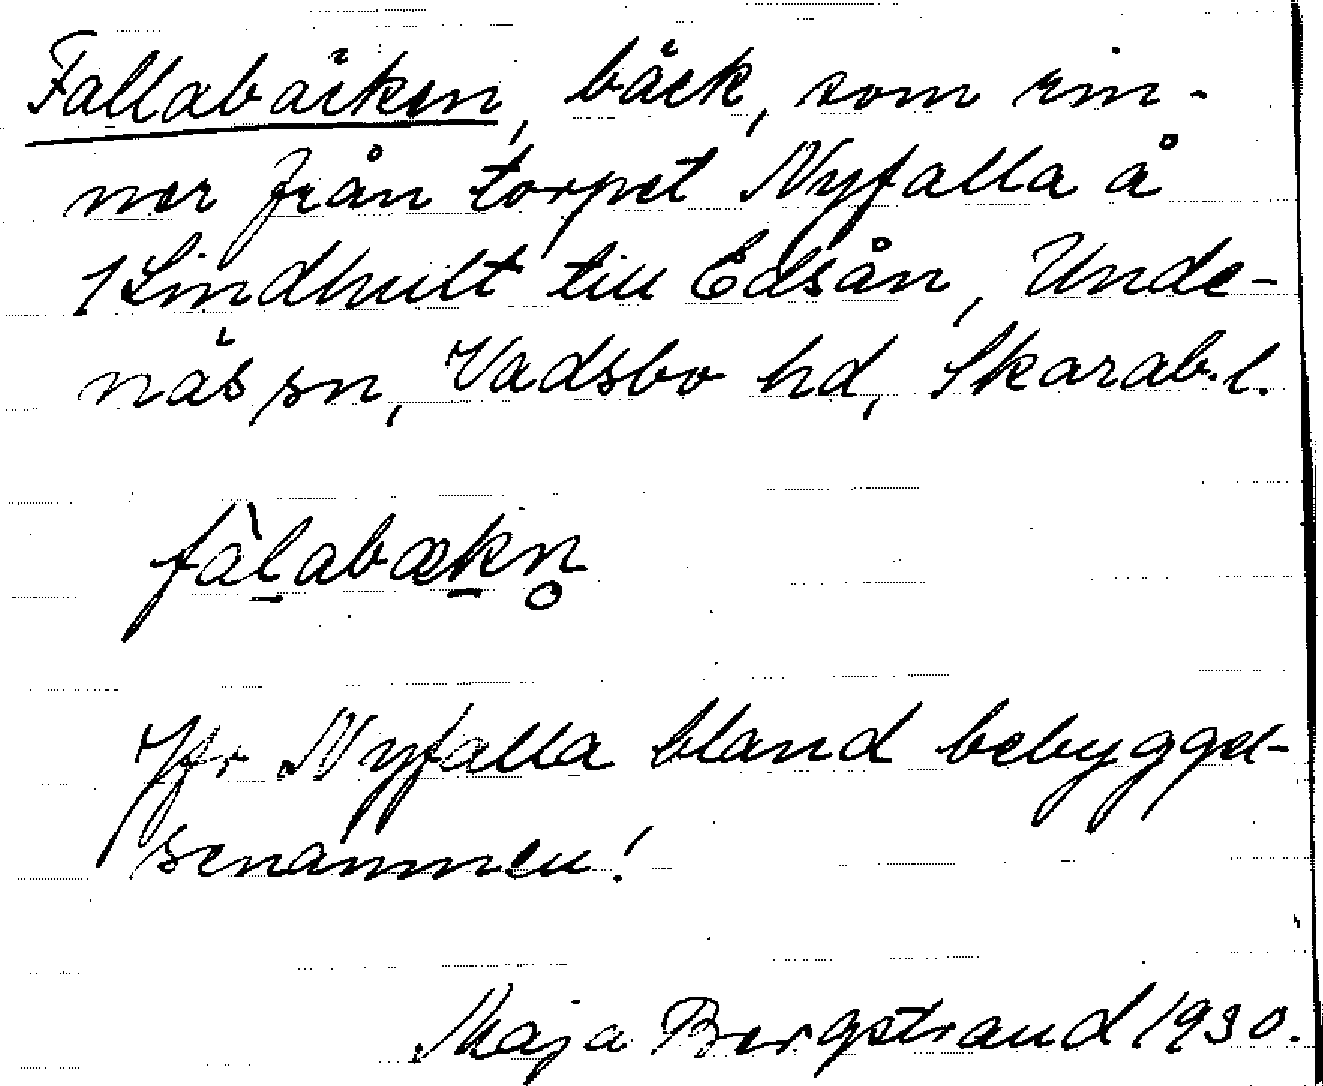 Fallabäcken, bäck, som rin-
ner från torpet Nyfalla å
1 Lindhult till Edsån, Unde-
näs sn, Vadsbo hd, Skarab.l.
fàl̠abæk̠n̥
Jfr Nyfalla bland bebyggel-
senamnen!
Maja Bergstrand 1930.